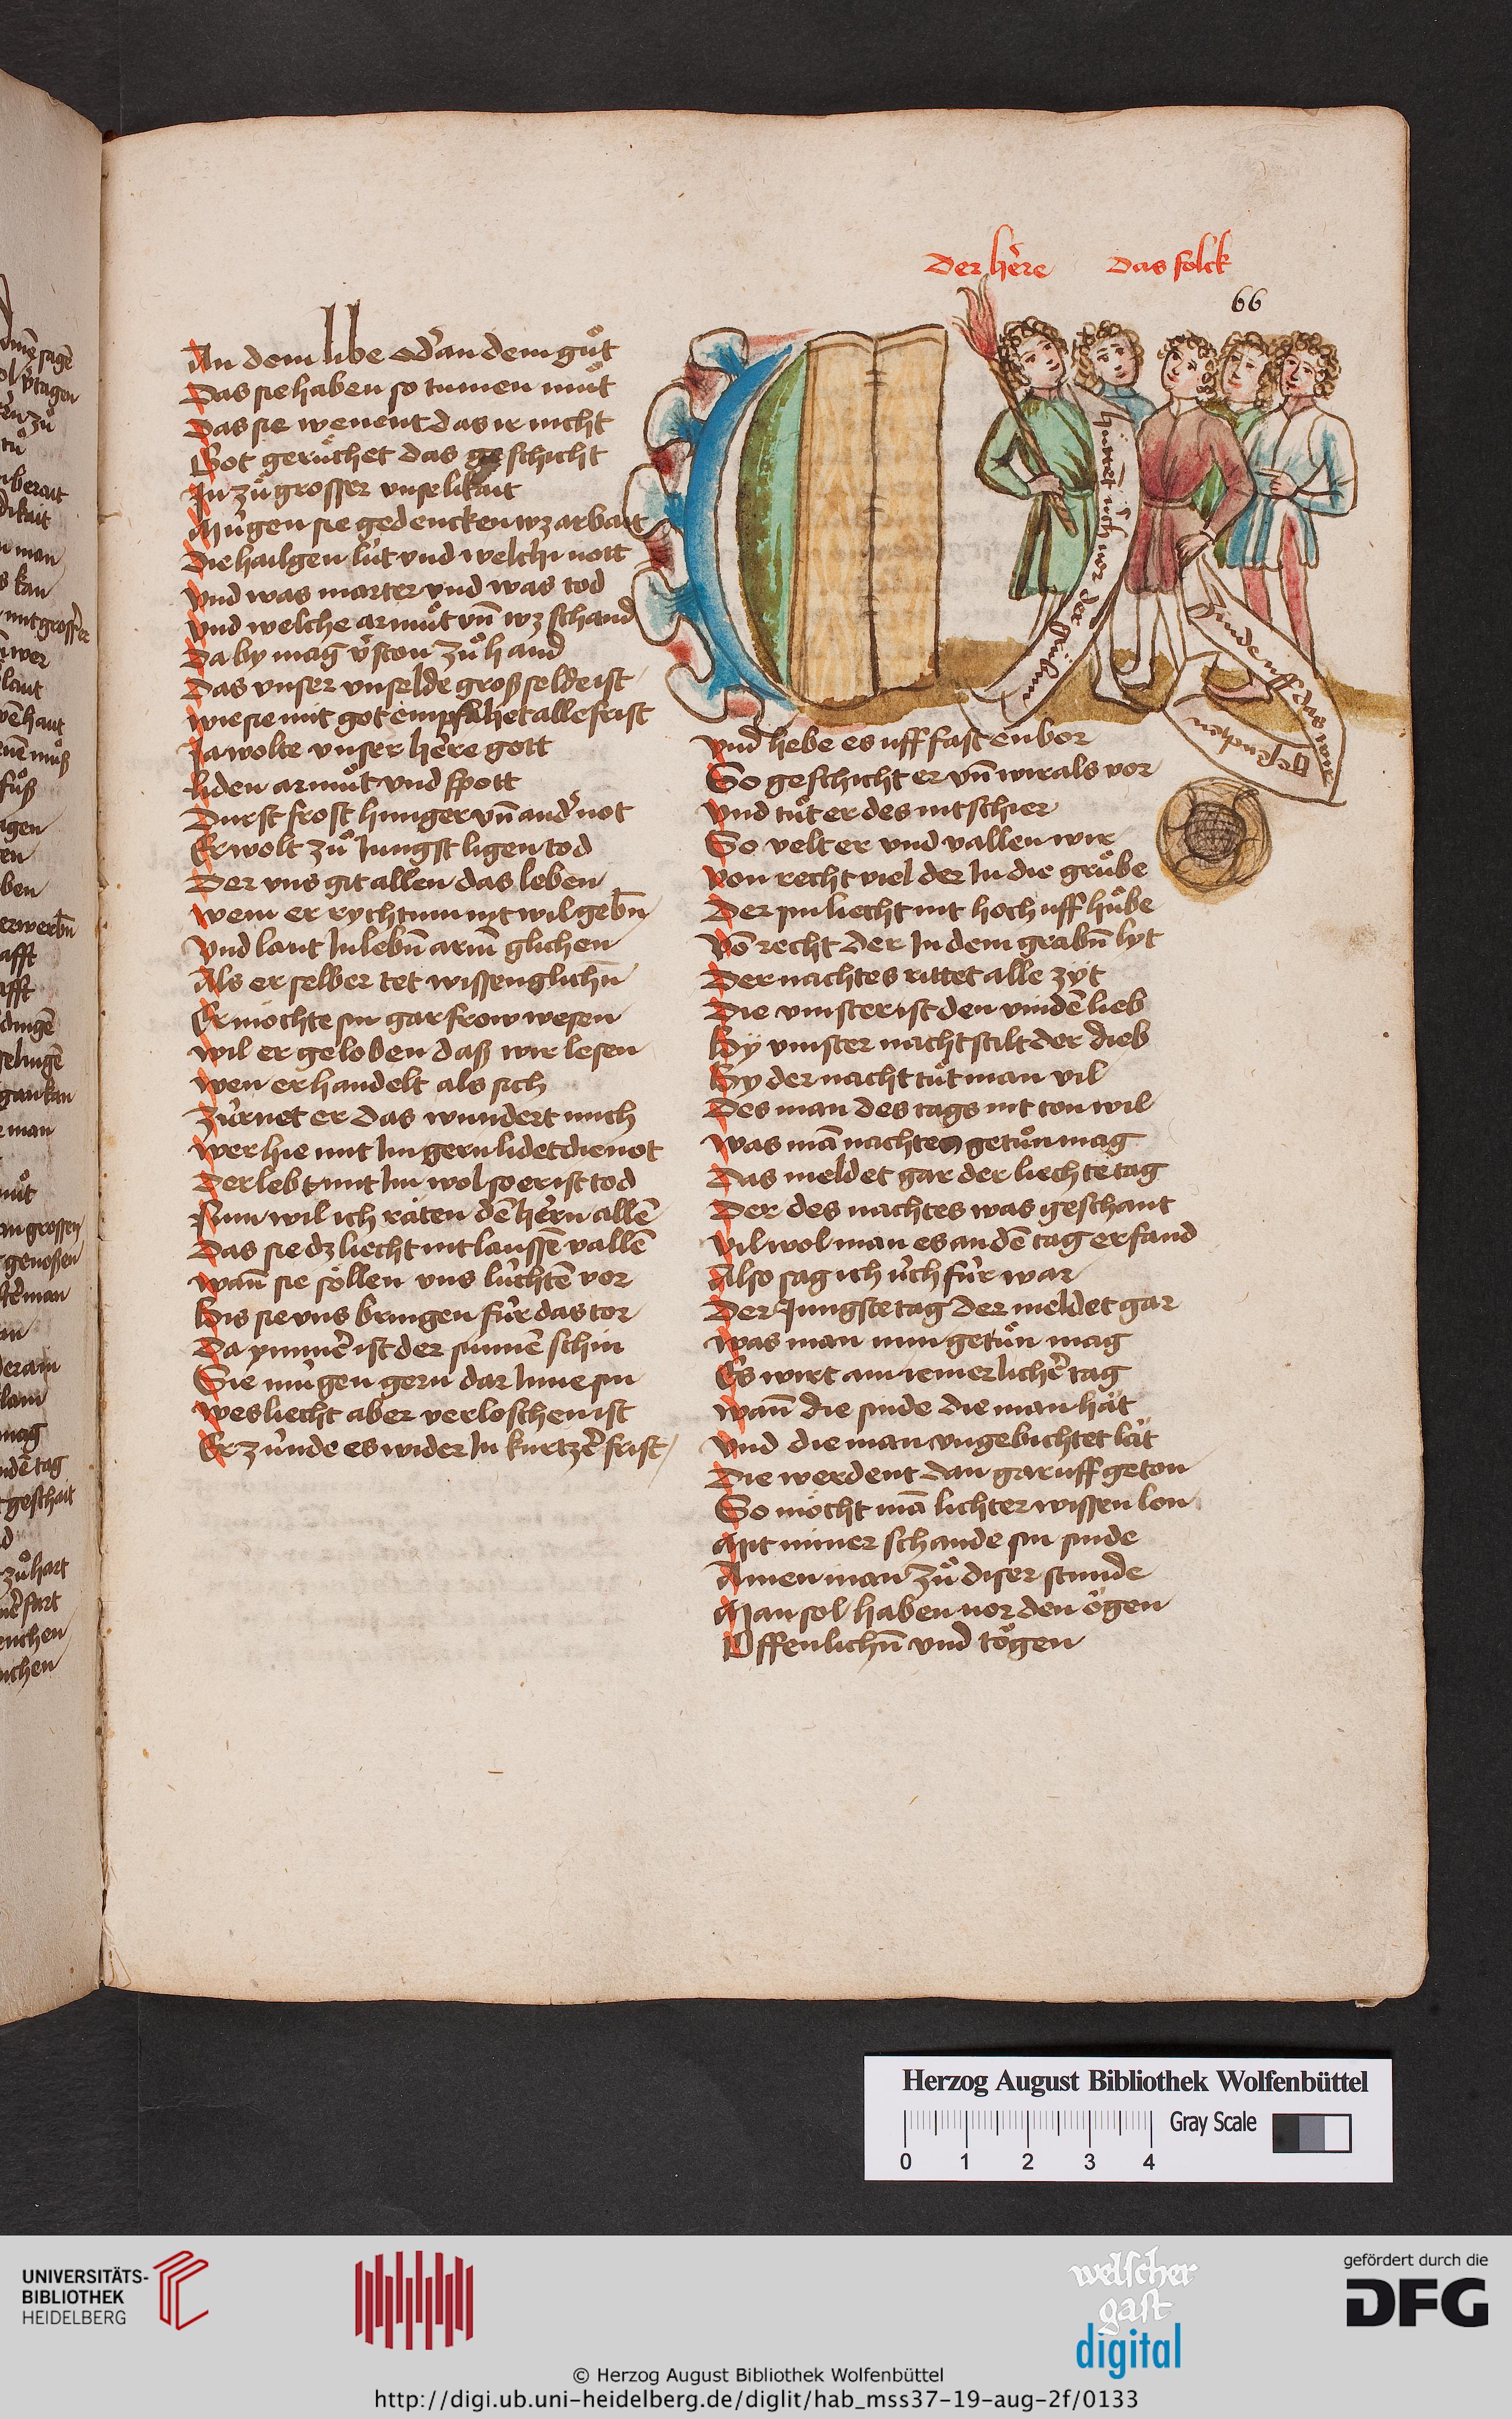 Der hẻre Das folck
66
An dem libe odˀ an dem gůt
Das sie haben so tumen můt
Das sie wenent das ir nicht
Got gerůchet das ge schicht
In zů grosser vnselikait
Mügen sie gedencken wz arbait
Die hailgen lüt vnd welch nott
Vnd was marter vnd was tod
Vnd welche armůt vn̄ wz schand
Da by mag v̉ston zů hand
Das vnser vnselde groß selde ist
Wie sie mit got empfahet alle frist
Ja wolte vnser hẻre gott
liden armůt vnd spott
Durst frost hunger vn̄ andˀ not
Er wolt zů Jungst ligen tod
Der vns git allen das leben
Wem er rychtum nyt wil gebn̄
Vnd lant In lebn̄ arm glichen
Als er selber tet wissenglichn̄
Er möchte sin gar frow wesen
Wil er geloben daß wir lesen
Wen er handelt als sich
Zürnet er das wundert mich
Wer hie mit Im gern lidet die not
Der lebt mit Im wol so er ist tod
Nun wil ich räten dē hẻrn allē
Das sie dz liecht nit laussē vallē
Wan̄ sie söllen vns lüchtē vor
Bis sie vns bringen für das tor
Da ymmẻ ist der sunnē schin
Sie mügen gern dar Inne sin
Wes liecht aber verloschen ist
Er zünde es wider In kurtzẻ frist
hüttet üch vor der grůbn
Zünde uff das wir
gesenchen
Vnd hebe es uff fast enbor
So geschicht er vn̄ wir als vor
Vnd tůt er des nit schier
So velt er vnd vallen wir
Von recht viel der In die grůbe
Der sin liecht nit hoch uff hůbe
Vō recht der In dem grabn̄ lyt
Der nachtes rittet alle zÿt
Die vinster ist den vindē lieb
Bÿ vinster nacht stilt der dieb
By der nacht tůt man vil
Des man des tags nit ton wil
Was mā nachtes getůn mag
Das meldet gar der liechte tag
Der des nachtes was geschant
Vil wol man es an dē tag erfand
Also sag ich üch für war
Der Jungste tag der meldet gar
Was man nun getůn mag
Es wirt ain iemerlichẻ tag
Wan̄ die sinde die man hät
Vnd die man vngebichtet lät
Die werdent dan gar uff geton
So möcht mā lichter wissen lon
Mit minner schande sin sinde
Ainen man zů diser stunde
Man sol haben vor den ögen
Offenlichn̄ vnd tögen
Herzog August Bibliothek Wolfenbüttel
Gray Scale
0 1 2 3 4
UNIVERSITÄTS-
BIBLIOTHEK
HEIDELBERG
welscher
gast
digital
gefördert durch die
DFG
© Herzog August Bibliothek Wolfenbüttel
http://digi.ub.uni-heidelberg.de/diglit/hab_mss37-19-aug-2f/0133